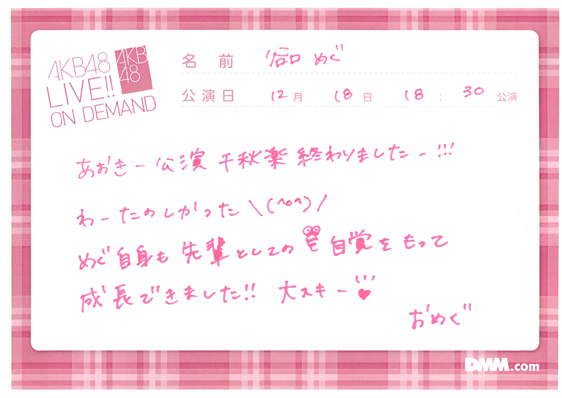 AKB48
LIVE!!
ON DEMAND
AKB
48
名前 谷口 めぐ
公演日 12月 18日 18:30公演
あおきー公演 千秋楽 終わりましたー!!!
わーたのしかった \(^o^)/
めぐ自身も 先輩としての 自覚をもって
成長できました!! 大スキー
おめぐ
DMM.com